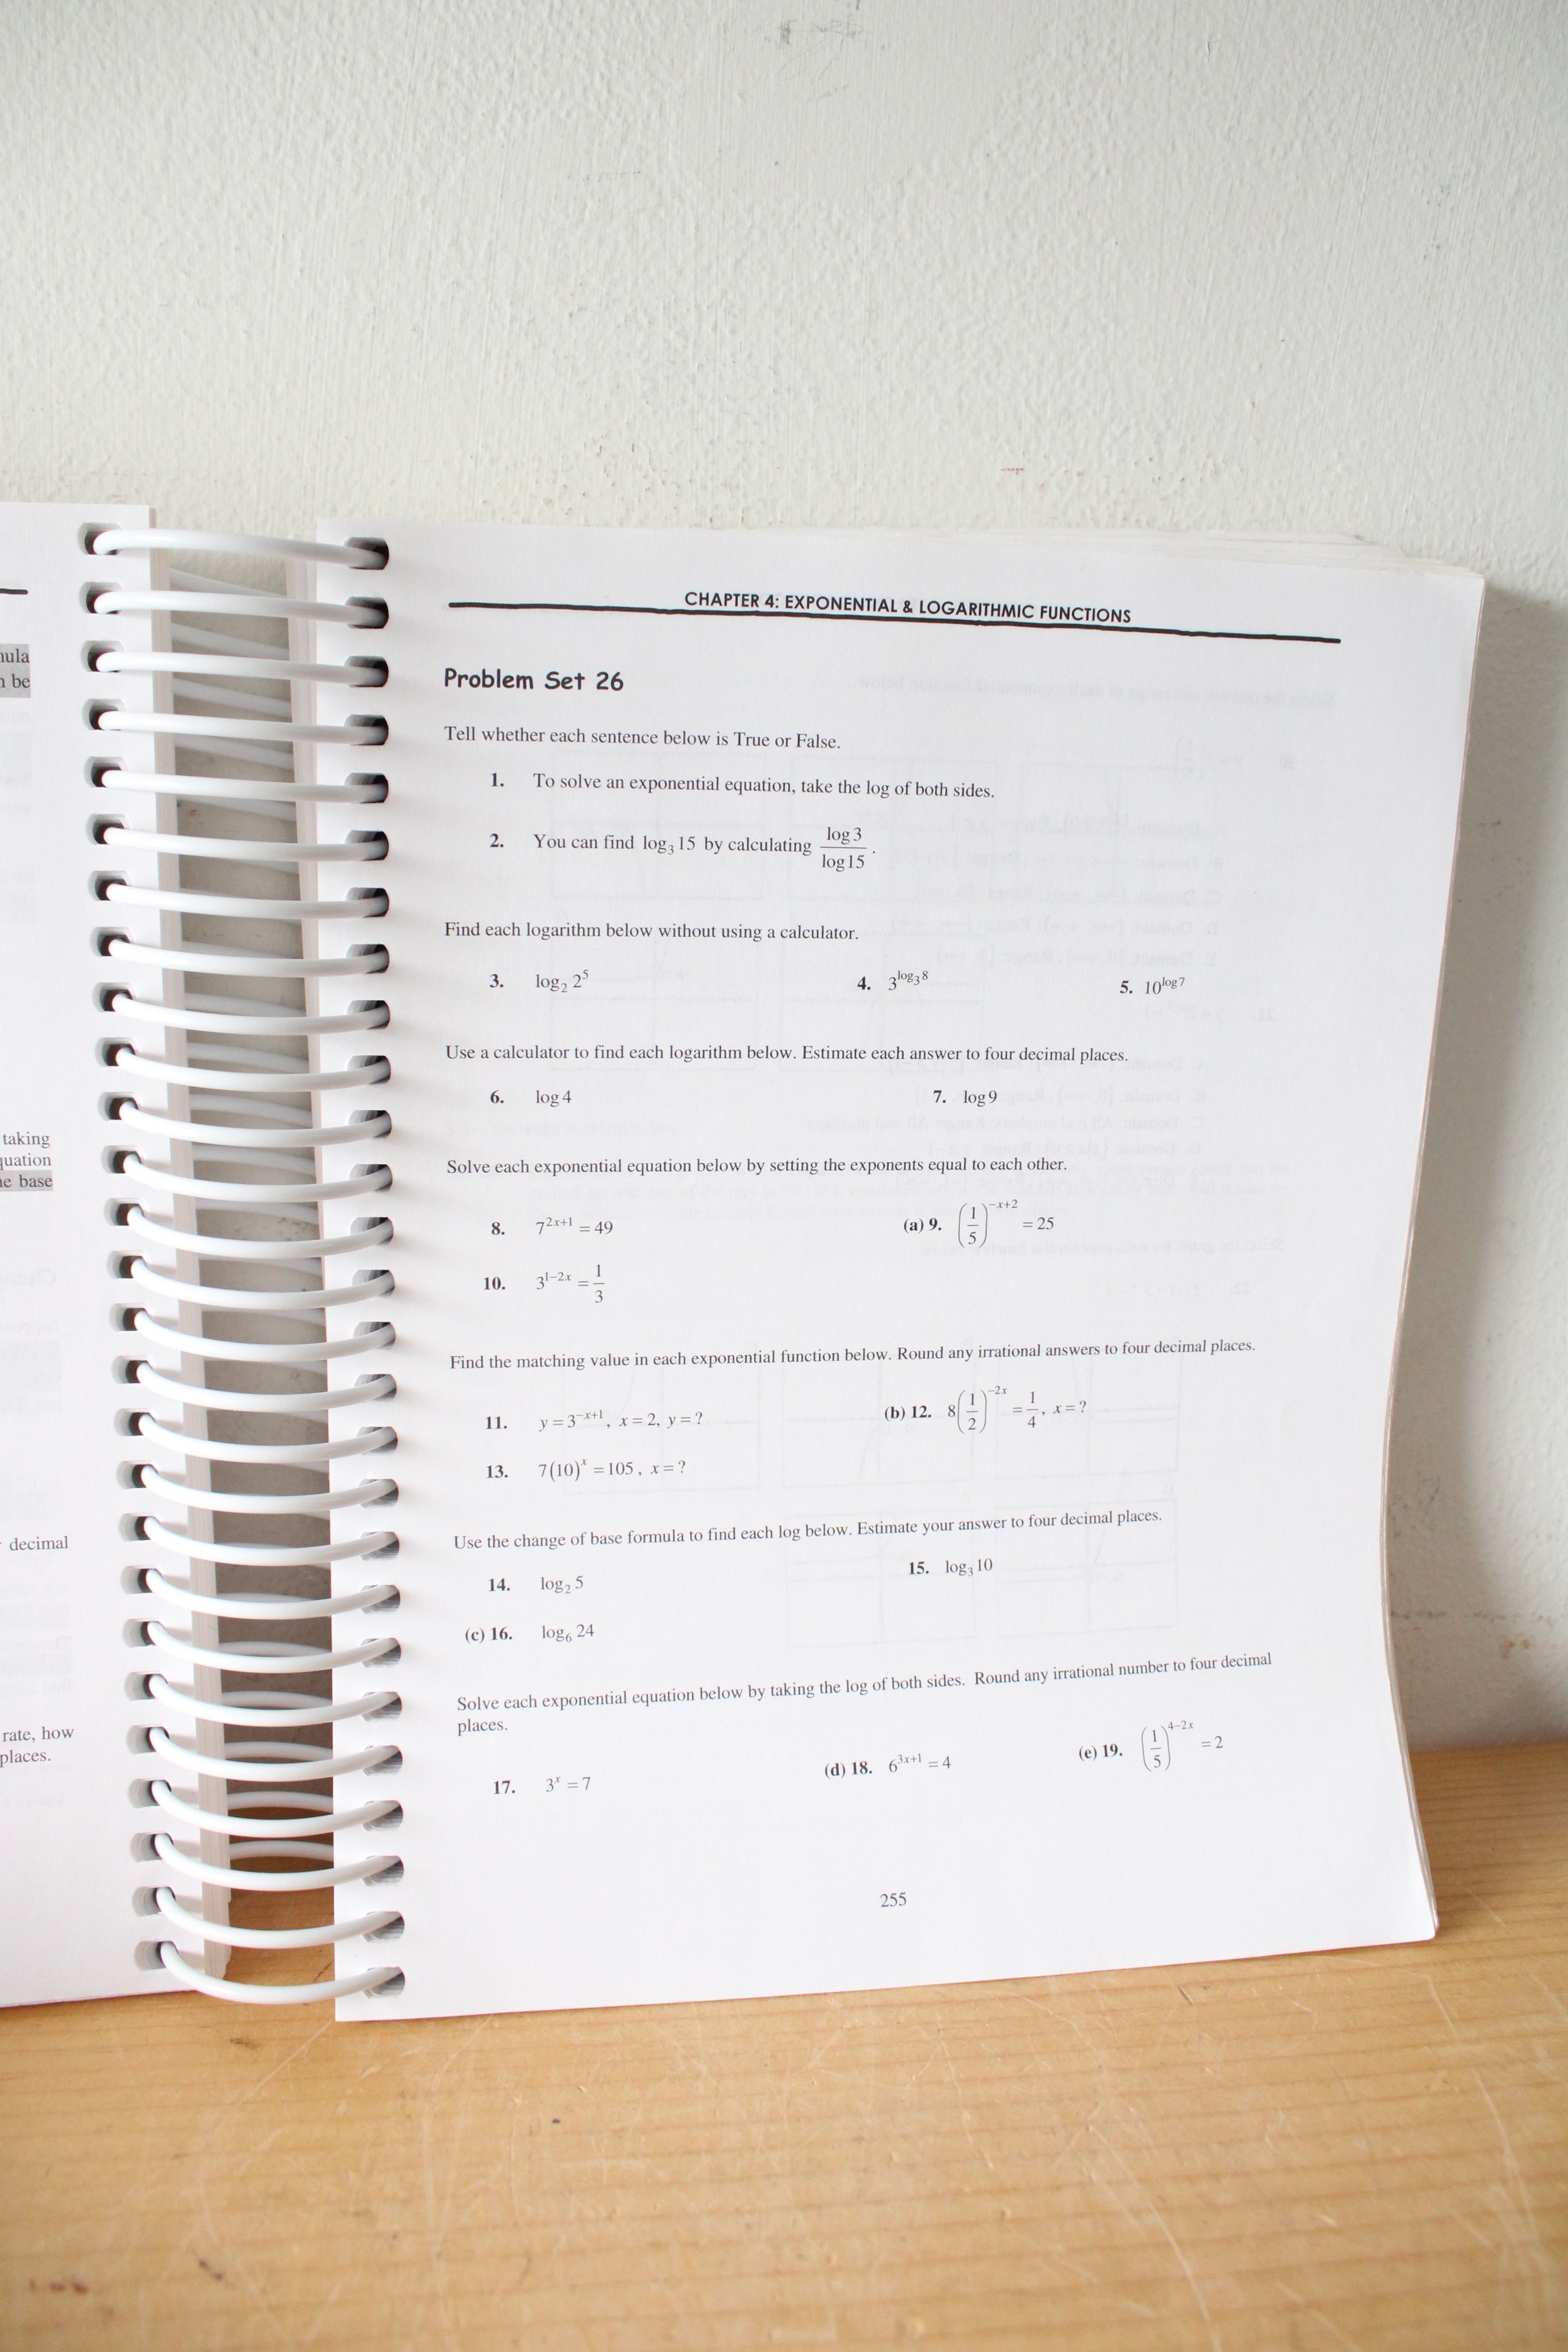 nula
n be
taking
quation
ne base
decimal
rate, how
places.
CHAPTER 4: EXPONENTIAL & LOGARITHMIC FUNCTIONS
Problem Set 26
Tell whether each sentence below is True or False.
1. To solve an exponential equation, take the log of both sides.
2. You can find log₃ 15 by calculating log 3 / log 15 .
Find each logarithm below without using a calculator.
3. log₂ 2⁵ 4. 3^(log₃ 8) 5. 10^(log 7)
Use a calculator to find each logarithm below. Estimate each answer to four decimal places.
6. log 4 7. log 9
Solve each exponential equation below by setting the exponents equal to each other.
8. 7^(2x+1) = 49 (a) 9. (1/5)^(−x+2) = 25
10. 3^(1−2x) = 1/3
Find the matching value in each exponential function below. Round any irrational answers to four decimal places.
11. y = 3^(−x+1), x = 2, y = ? (b) 12. 8(1/2)^(−2x) = 1/4, x = ?
13. 7(10)^x = 105, x = ?
Use the change of base formula to find each log below. Estimate your answer to four decimal places.
14. log₂ 5 15. log₃ 10
(c) 16. log₆ 24
Solve each exponential equation below by taking the log of both sides. Round any irrational number to four decimal
places.
17. 3^x = 7 (d) 18. 6^(3x+1) = 4 (e) 19. (1/5)^(4−2x) = 2
255